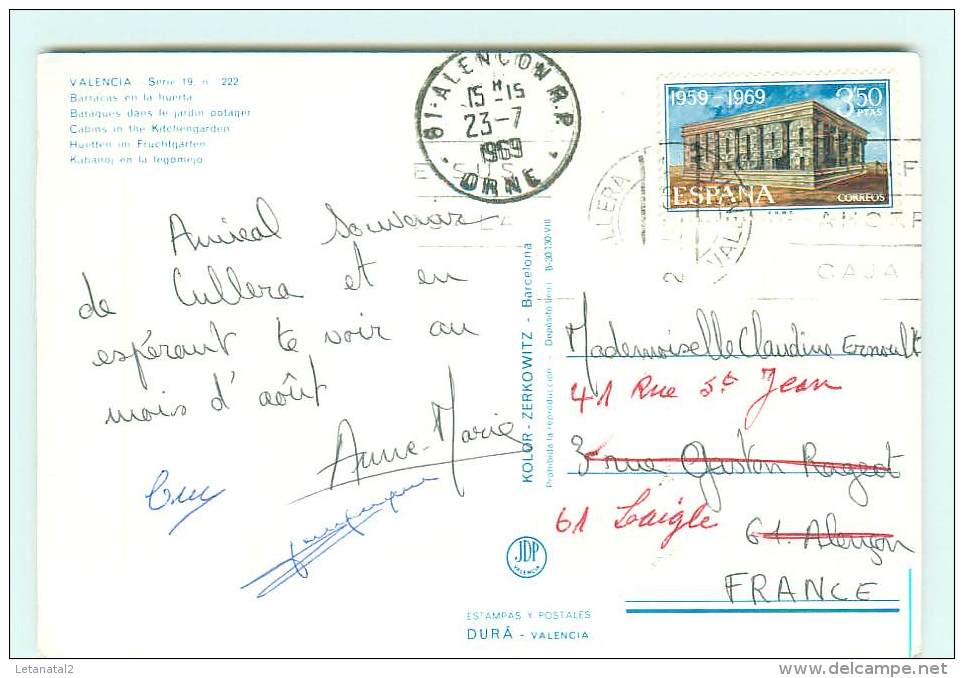 VALENCIA Serie 19, n. 222
Barracas en la huerta
Baraques dans le jardin potager
Cabins in the Kitchengarden
Huetten im Fruchtgarten
Kabanoj en la legomejo
61-ALENCON R.P.
15 H 15
23-7
1969
ORNE
1959-1969
3'50
PTAS
ESPAÑA
CORREOS
CULLERA
VALENCIA
CAJA
Amical Souvenir
de Cullera et en
espérant te voir au
mois d'août
Anne-Marie
Guy
KOLOR - ZERKOWITZ - Barcelona
Prohibida la reproducción - Depósito legal B-30130-VIII
Mademoiselle Claudine Ernoult
41 Rue St Jean
3 rue Gaston Rageot
61 Laigle
61. Alençon
FRANCE
JDP
VALENCIA
ESTAMPAS Y POSTALES
DURÁ - VALENCIA
Letanatal2
delcampe.net